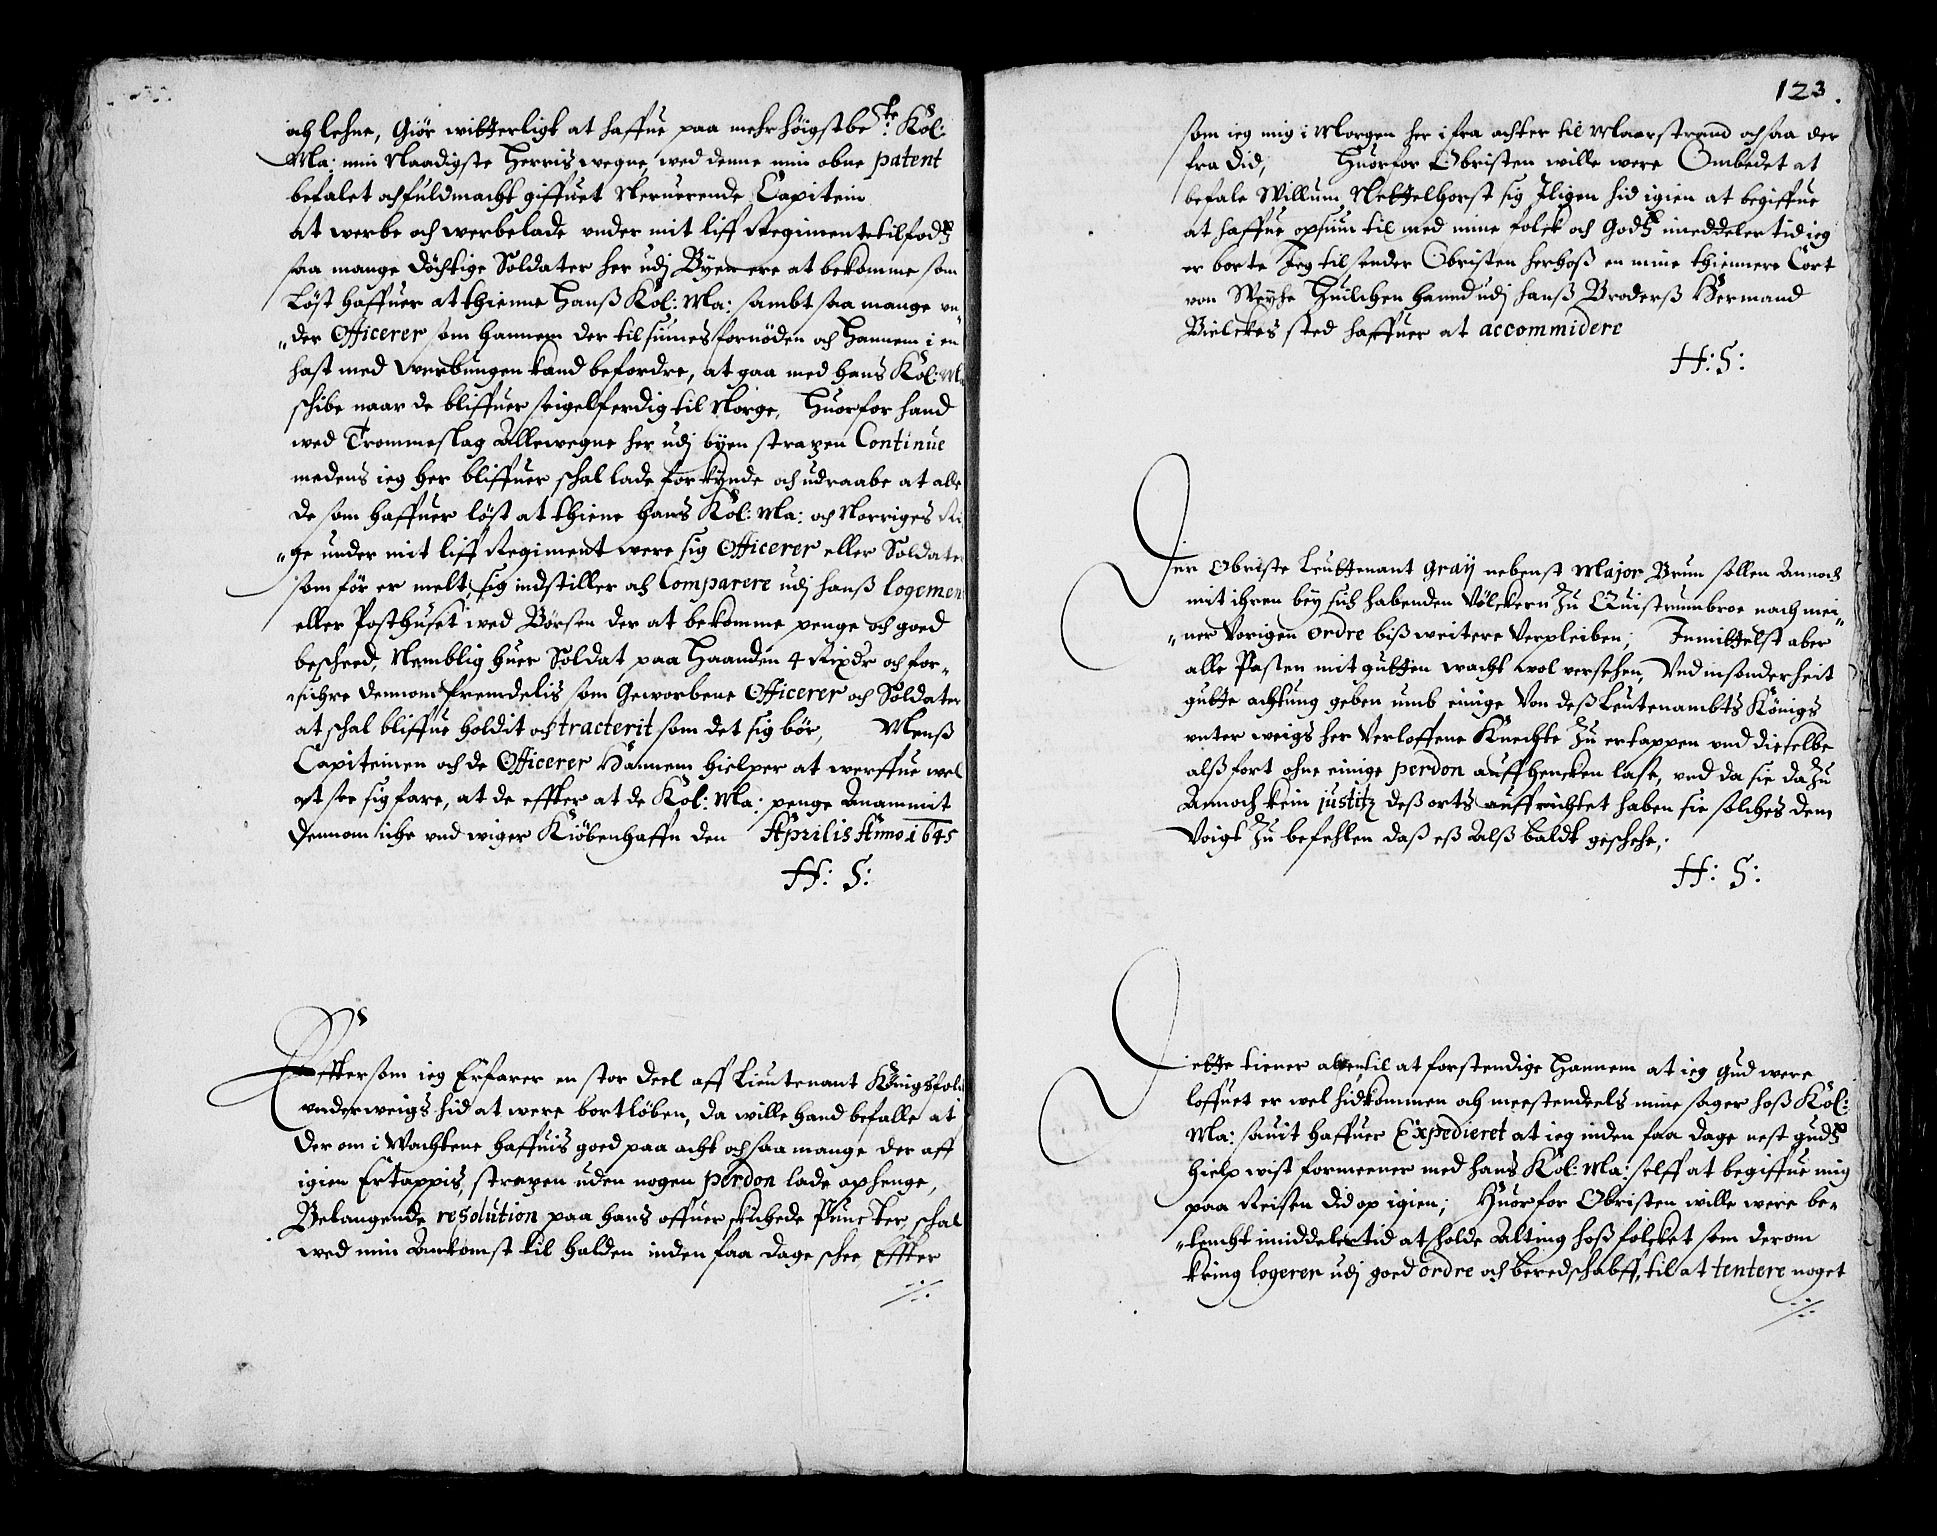 och lehne, Giör witterligt at haffue paa mehr höigstbe:te Kol:
Ma: min Naadigste Herris wegne, wed denne min obne patent
befalet och fuldmacht giffuet Neruerende Capitein
at werbe och werbe lade under mit liff Regimente til fodß
saa mange döchtige Soldater her udj Byen ere at bekomme som
Löst haffuer at thienne Hanß Kol: Ma: sambt saa mange un„
„der Officerer som hannem der til siunes fornöden och Hannem i en
hast med Werbungen kand befordre, at gaa med hans Kol: Ma
schibe naar de bliffuer seigelferdig til Norge, Huorfor hand
wed Trommeslag Allewegne her udj byen straxen Continue
medens ieg her bliffuer schal lade forkynde och udraabe at alle
de som haffuer löst at thiene hans Kol: Ma: och Norriges Ri
„ge under mit liff Regiment were sig Officerer eller Soldater
som för er melt, sig indstiller och Comparere udj hanß logement
eller Posthuset wed Börsen der at bekomme penge och goed
bescheed, Nemblig huer Soldat paa Haanden 4 Rixdr och for„
„sichre dennom fremdelis som Geworbene Officerer och Soldater
at schal bliffue holdit och tracterit som det sig bör, Menß
Capiteinen och de Officerer Hannem hielper at werffue wel
at see sig fare, at de effter at de Kol: Ma: penge Anammit
dennom iche und wiger Kiöbenhaffn den Aprilis Anno 1645
H: S:
Effter som ieg Erfarer en stor deel aff Lieutenant Königs folch
underweigs hid at were bortlöben, da wille hand befalle at
der om i Wachtene haffuis goed paa acht och saa mange der aff
igien Ertappis, straxen uden nogen perdon lade ophenge,
Belangende resolution paa hans offuer schichede Puncter, schal
wed min Ankomst til Halden inden faa dage schee, Effter
123.
som ieg mig i Morgen her ifra achter til Maarstrand och saa der
fra did, Huorfor Obristen wille were Ombedet at
befale Willum Nettelhorst sig Iligen hid igien at begiffue
at haffue opsiun til med mine folck och Godß imeddeler tid ieg
er borte Jeg til sender Obristen herhoß en mine thiennere Cort
von Weyhe Huilchen hannd udj hanß Broderß Hermand
Bielckes sted haffuer at accommidere
H: S:
Der Obriste Leuttenant Graÿ nebenst Major Brun sollen Annoch
mit ihren bey sich habenden Völckern Zu Quistrumbroe nach mei„
„ner Vorigen ordre biß weitere Verpleiben; Inmittelst aber
alle Pasten mit gutten wacht wol versehen, Und insonderheit
gutte achtung geben umb einige Von deß Leutenambts Königs
unter weigs her Verloffene Knechte Zu ertappen und dieselbe
alß fort ohne einige perdon auffhencken lase, und da sie dazu
Annoch kein justitz deß orts auffrichtet haben sie solches dem
Voigt Zu befehlen daß eß Alß baldt geschehe;
H: S:
Dette tiener allene til at forstendige Hannem at ieg Gud were
loffuet er wel hidkommen och meestendeels mine sager hoß Kol:
Ma: sauit haffuer Expedieret at ieg inden faa dage nest gudß
hielp wist formeener med hans Kol: Ma: selff at begiffue mig
paa Reisen did op igien; Huorfor Obristen wille were be„
„tencht imiddeler tid at holde Alting hoß folcket som der om
kring logerer udj goed ordre och beredschabff, til at tentere noget